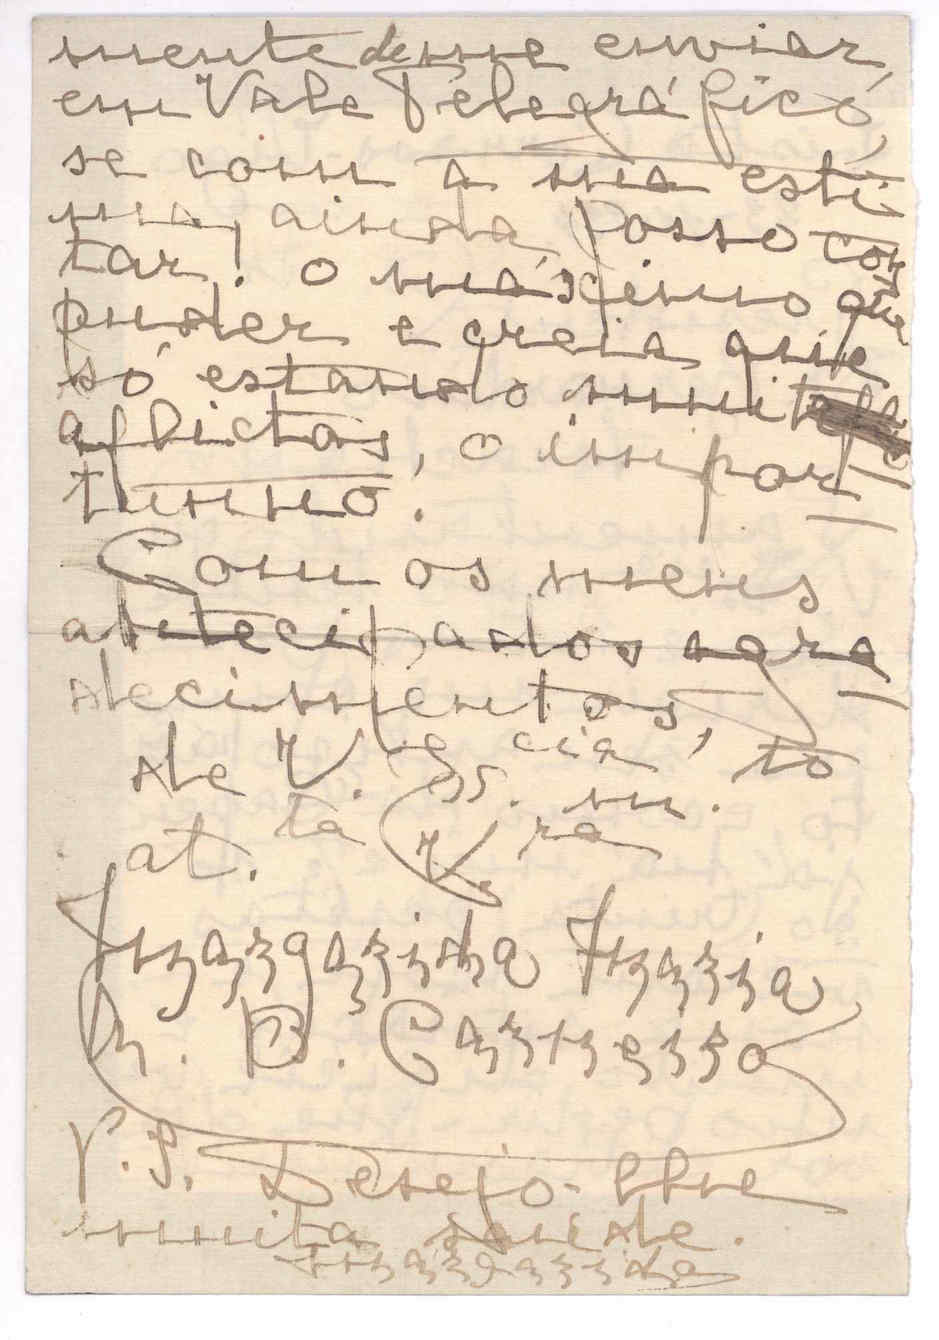 mente de me enviar,
em Vale Telegráfico,
se com a sua esti-
ma, ainda posso con-
tar! O máximo que
puder e creia que
só estando muito
aflictas, o impor-
tunno.
Com os meus
antecipados agra-
decimentos,
de V. Excia,
at.ta
Margarida Maria
B.
P. S. Desejo-lhe
muita saúde.
Margarida